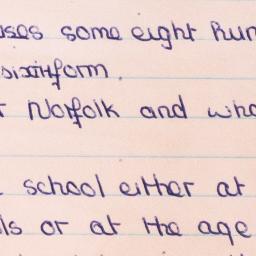 some eight
sixthform.
Norfolk and
school either at
or at the age